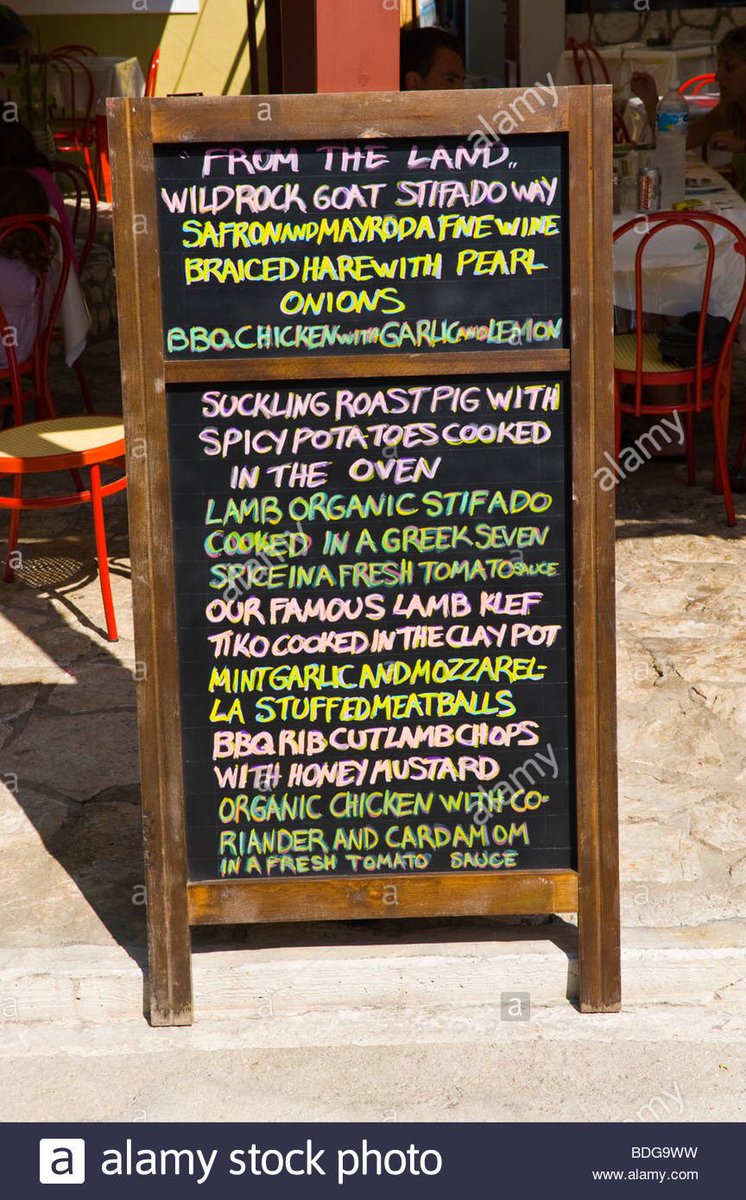 "FROM THE LAND"
WILDROCK GOAT STIFADO WAY
SAFRON AND MAYRODAFNE WINE
BRAICED HARE WITH PEARL
ONIONS
BBQ.CHICKEN WITH GARLIC AND LEMON
SUCKLING ROAST PIG WITH
SPICY POTATOES COOKED
IN THE OVEN
LAMB ORGANIC STIFADO
COOKED IN A GREEK SEVEN
SPICE IN A FRESH TOMATO SAUCE
OUR FAMOUS LAMB KLEF
TIKO COOKED IN THE CLAY POT
MINT GARLIC AND MOZZAREL-
LA STUFFED MEATBALLS
BBQ RIB CUT LAMB CHOPS
WITH HONEY MUSTARD
ORGANIC CHICKEN WITH CO-
RIANDER AND CARDAMOM
IN A FRESH TOMATO SAUCE
alamy
alamy
alamy
alamy
alamy
a alamy stock photo
BDG9WW
www.alamy.com